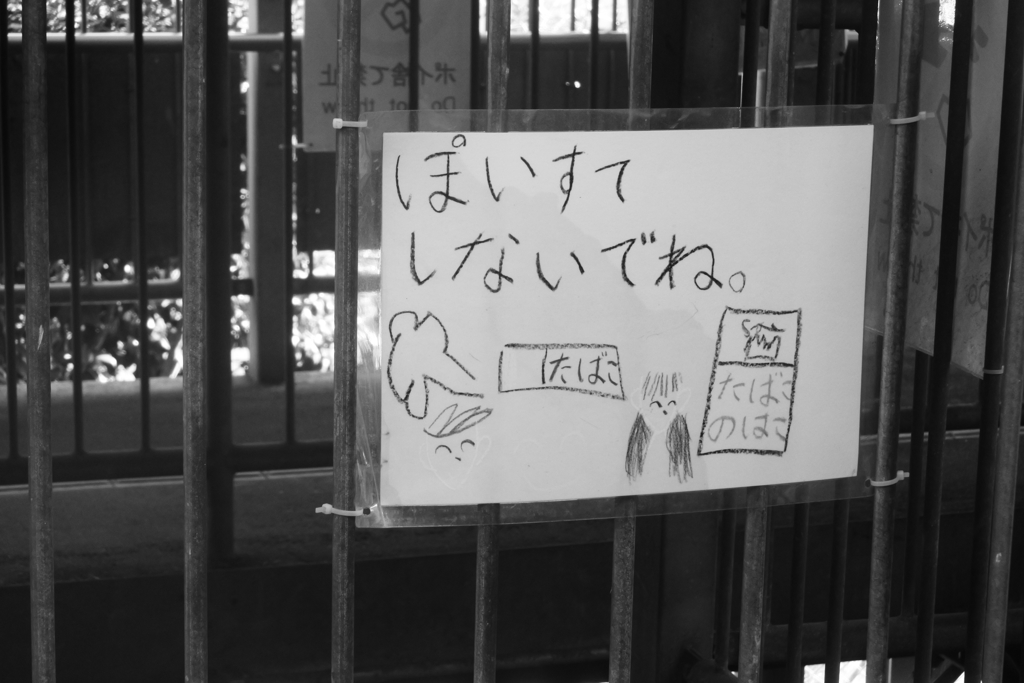 ぽいすて
しないでね。
たばこ
たばこ
のはこ
ポイ捨て禁止
Do not throw